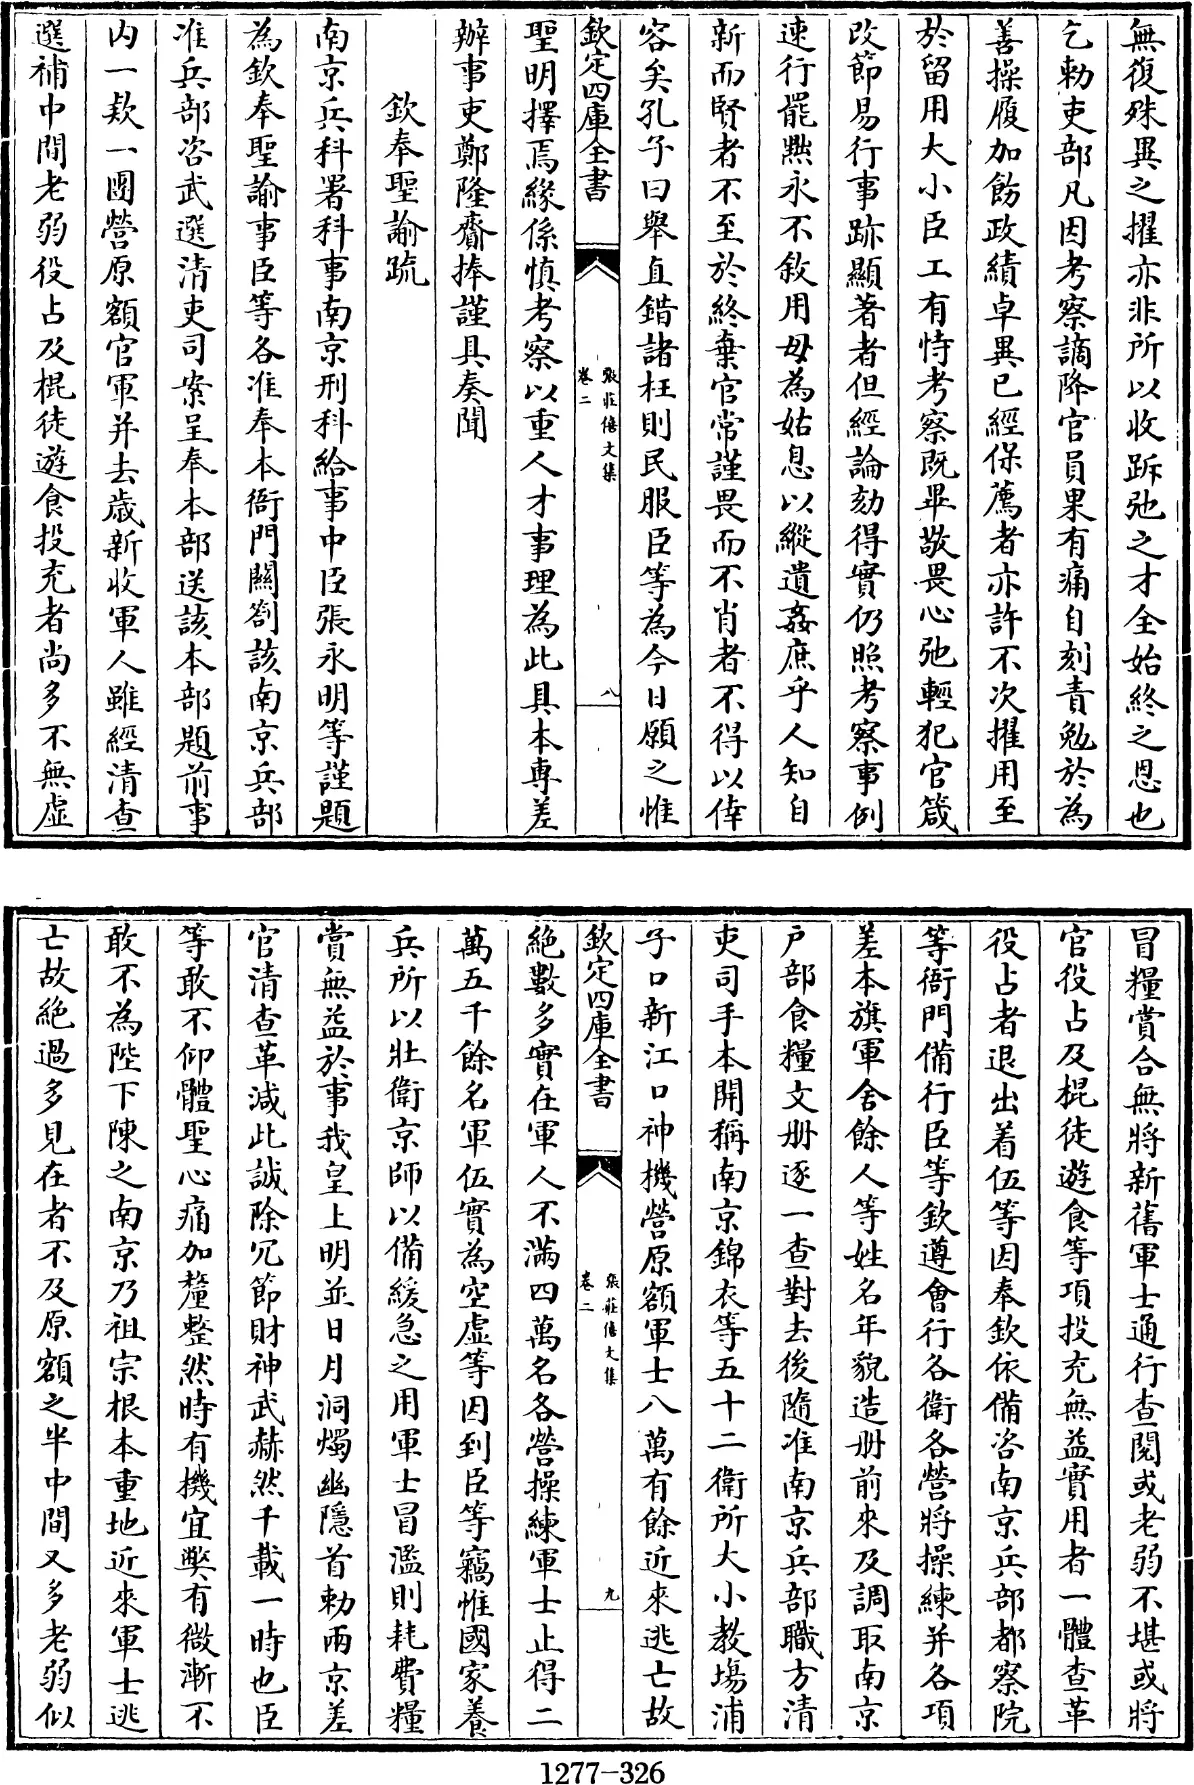 無復殊異之擢亦非所以收跅弛之才全始終之恩也
乞勅吏部凡因考察謫降官員果有痛自刻責勉於為
善操履加飭政績卓異已經保薦者亦許不次擢用至
於留用大小臣工有恃考察既畢敬畏心弛輕犯官箴
改節易行事跡顯著者但經論劾得實仍照考察事例
速行罷黜永不敘用毋為姑息以縱遺姦庶乎人知自
新而賢者不至於終棄官常謹畏而不肖者不得以倖
容矣孔子曰舉直錯諸枉則民服臣等為今日願之惟
欽定四庫全書
張莊僖文集
卷二
八
聖明擇焉緣係慎考察以重人才事理為此具本專差
辦事吏鄭隆齎捧謹具奏聞
欽奉聖諭疏
南京兵科署科事南京刑科給事中臣張永明等謹題
為欽奉聖諭事臣等各准奉本衙門關劄該南京兵部
准兵部咨武選清吏司案呈奉本部送該本部題前事
內一款一團營原額官軍并去歲新收軍人雖經清查
選補中間老弱役占及棍徒遊食投充者尚多不無虛
冒糧賞合無將新舊軍士通行查閱或老弱不堪或將
官役占及棍徒遊食等項投充無益實用者一體查革
役占者退出着伍等因奉欽依備咨南京兵部都察院
等衙門備行臣等欽遵會行各衛各營將操練并各項
差本旗軍舍餘人等姓名年貌造册前來及調取南京
户部食糧文册逐一查對去後隨准南京兵部職方清
吏司手本開稱南京錦衣等五十二衛所大小教場浦
子口新江口神機營原額軍士八萬有餘近來逃亡故
欽定四庫全書
張莊僖文集
卷二
九
絕數多實在軍人不滿四萬名各營操練軍士止得二
萬五千餘名軍伍實為空虛等因到臣等竊惟國家養
兵所以壯衛京師以備緩急之用軍士冒濫則耗費糧
賞無益於事我皇上明並日月洞燭幽隱首勅兩京差
官清查革減此誠除冗節財神武赫然千載一時也臣
等敢不仰體聖心痛加釐整然時有機宜弊有微漸不
敢不為陛下陳之南京乃祖宗根本重地近來軍士逃
亡故絕過多見在者不及原額之半中間又多老弱似
1277-326